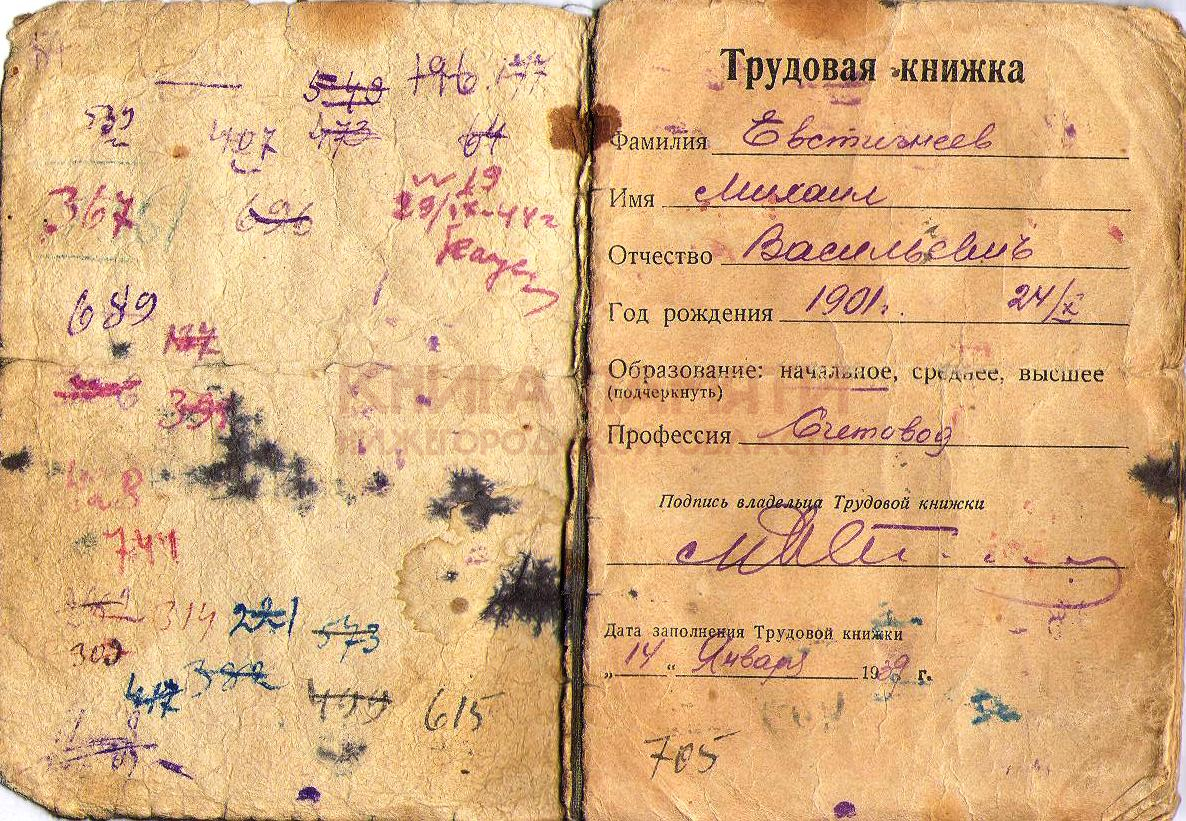 549 196.
539 407 472 64
367 696 № 19
29/IX-44 г
689
741
314 221 573
309
417 382 499 615
Трудовая книжка
Фамилия Евстигнеев
Имя Михаил
Отчество Васильевичъ
Год рождения 1901 г. 24/X
Образование: начальное, среднее, высшее
(подчеркнуть)
КНИГА ПАМЯТИ
НИЖЕГОРОДСКОЙ ОБЛАСТИ
Профессия Счетовод
Подпись владельца Трудовой книжки
Дата заполнения Трудовой книжки
„ 14 “ Января 1939 г.
705